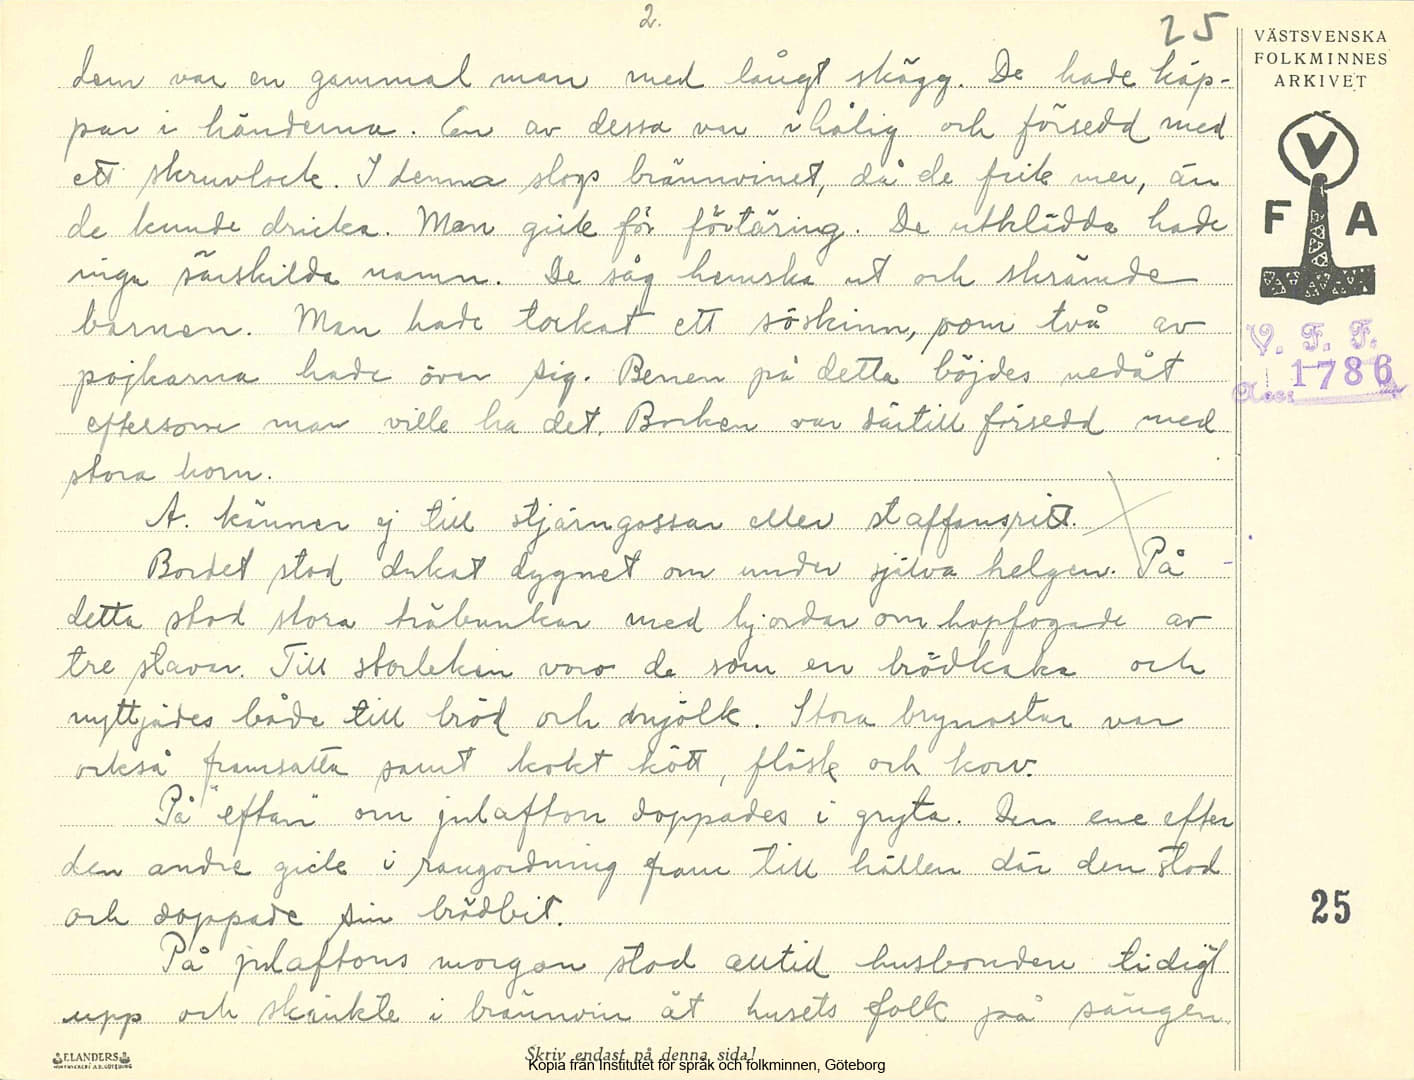 2.
25
VÄSTSVENSKA
FOLKMINNES
ARKIVET
V
F A
V. F. F.
Acc: 1786
dem var en gammal man med långt skägg. De hade käp-
par i händerna. En av dessa var ihålig och försedd med
ett skruvlock. I denna slogs brännvinet, då de fick mer, än
de kunde dricka. Man gick för förtäring. De utklädda hade
inga särskilda namn. De såg hemska ut och skrämde
barnen. Man hade torkat ett söskinn, som två av
pojkarna hade över sig. Benen på detta böjdes nedåt
eftersom man ville ha det. Bocken var därtill försedd med
stora horn.
A. känner ej till stjärngossar eller staffansritt.
Bordet stod dukat dygnet om under själva helgen. På
detta stod stora träbunkar med hjordar om hopfogade av
tre stavar. Till storleken voro de som en brödkaka och
nyttjades både till bröd och mjölk. Stora brynostar var
också framsatta samt kokt kött, fläsk och korv.
På "eftan" om julafton doppades i gryta. Den ene efter
den andre gick i rangordning fram till hällen där den stod
och doppade sin brödbit.
På julaftons morgon stod alltid husbonden tidigt
upp och skänkte i brännvin åt husets folk på sängen.
25
ELANDERS
Skriv endast på denna sida!
Kopia från Institutet för språk och folkminnen, Göteborg